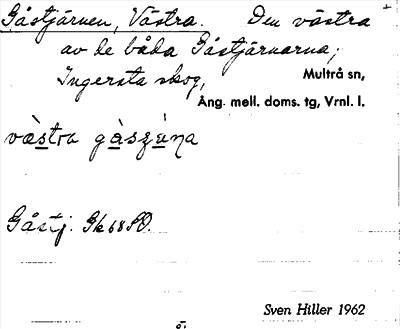 Gåstjärnen, Västra. Den västra
av de båda Gåstjärnarna,
Ingersta skog, Multrå sn,
Ång. mell. doms. tg, Vrnl. l.
Gåstj. Gk 68 SO.
Sven Hiller 1962